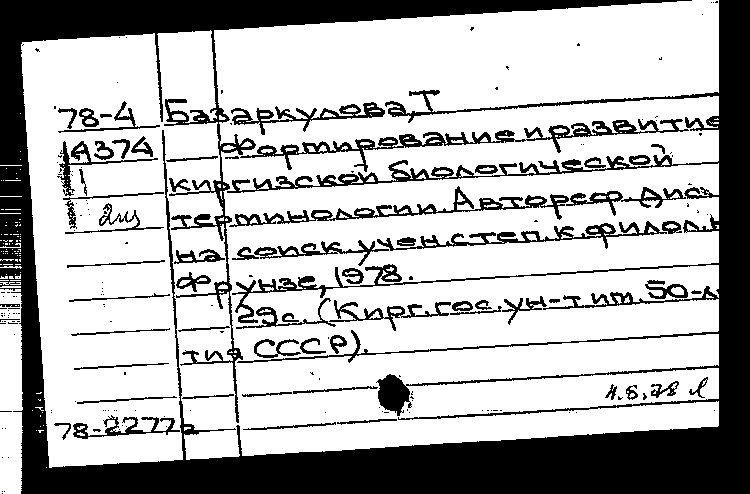 78-4 Базаркулова, Т
14374 Формирование и развитие
киргизской биологической
2 терминологии. Автореф. дис.
на соиск. учен. степ. к. филол. н
Фрунзе, 1978.
29с. (Кирг. гос. ун-т им. 50-л
тия СССР).
4.8.78
78-22772